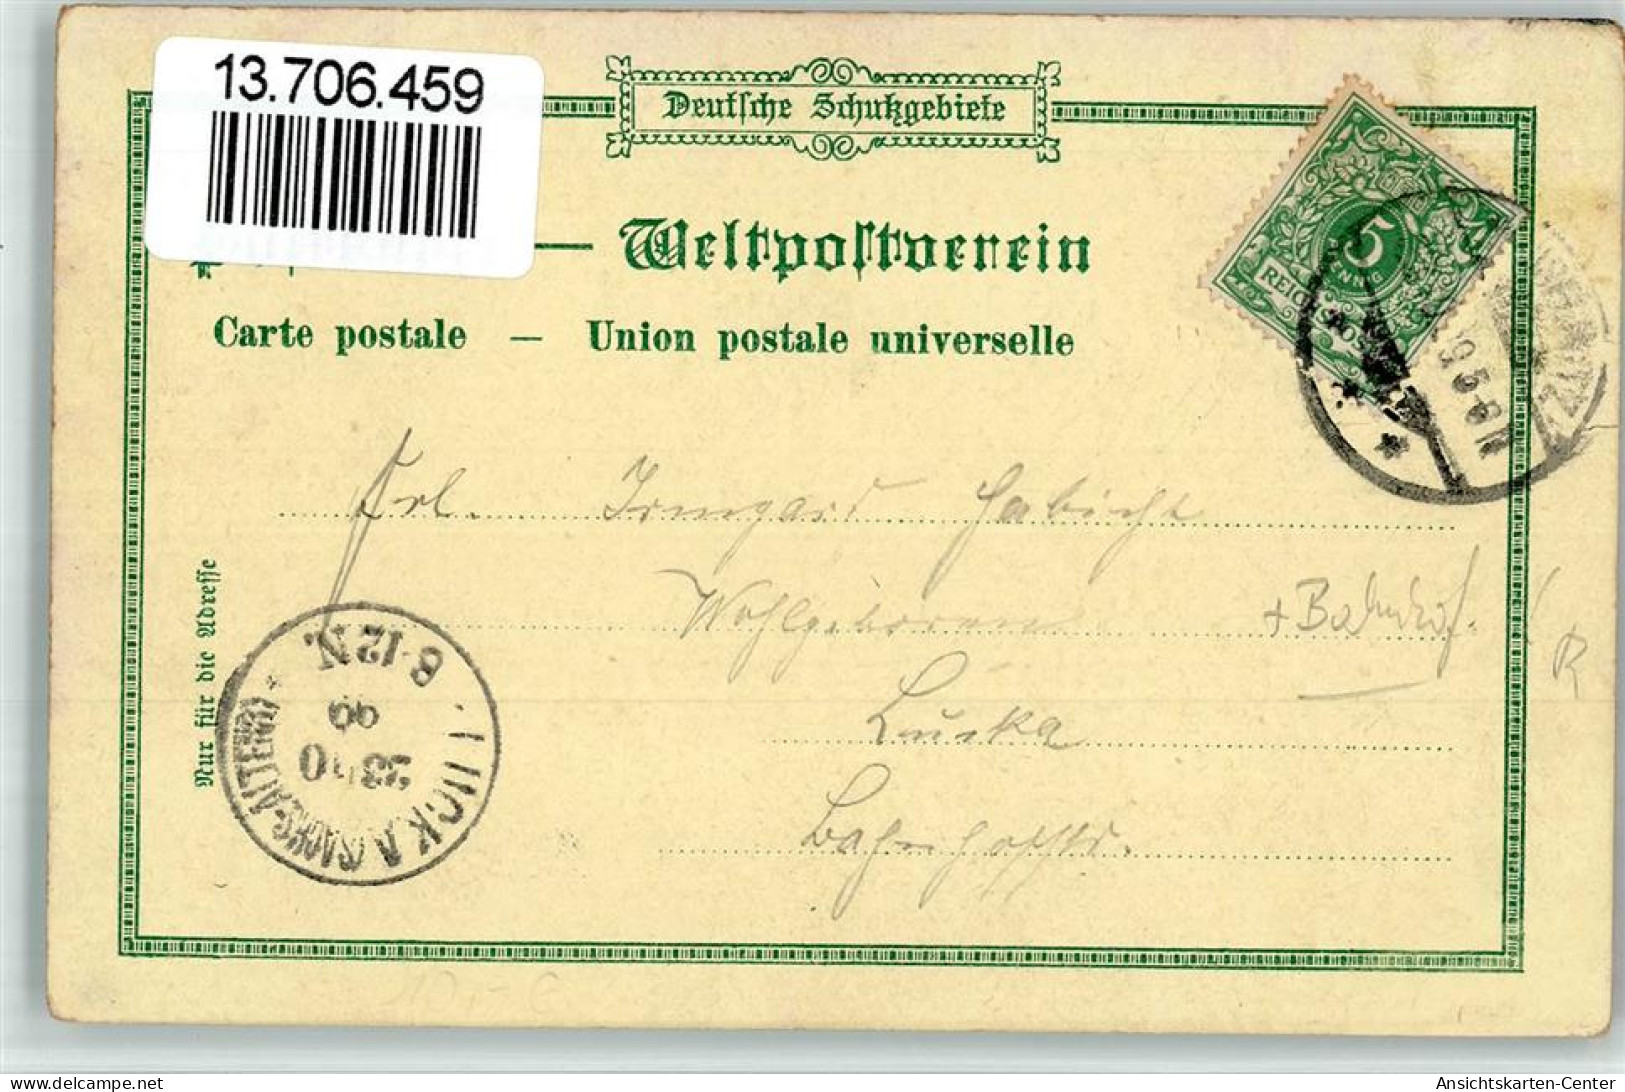 13.706.459
Deutsche Schutzgebiete
— Weltpostverein
Carte postale — Union postale universelle
5
PFENNIG
REICHSPOST
5-6N
Frl. Irmgard Habicht
Wohlgeboren + Bahnhof.
R
Lucka
Bahnhofstr.
Nur für die Adresse
LUCKA (SACHS-ALTENBG)
23/10
99
8-12N.
www.delcampe.net
Ansichtskarten-Center